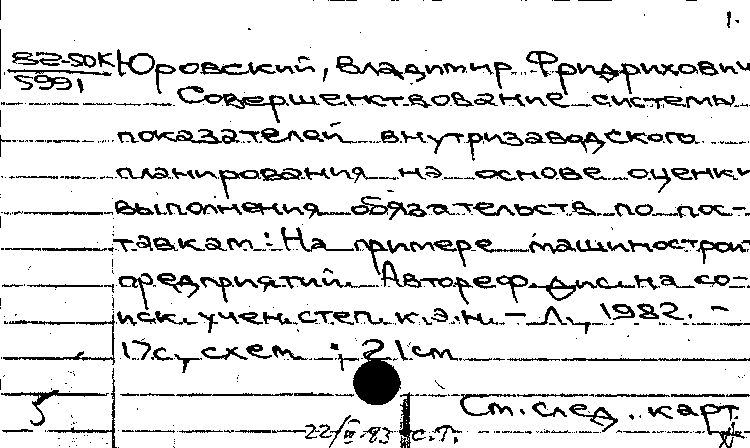 1.
82-50К Юровский, Владимир Фридрихович
5991
Совершенствование системы
показателей внутризаводского
планирования на основе оценки
выполнения обязательств по пос-
тавкам: На примере машиностроит
предприятий. Автореф. дис. на со-
иск. учен. степ. к.э.н. – Л., 1982. –
17с., схем. ; 21см
5
См. след. карт.
22/III-83 с.Т.